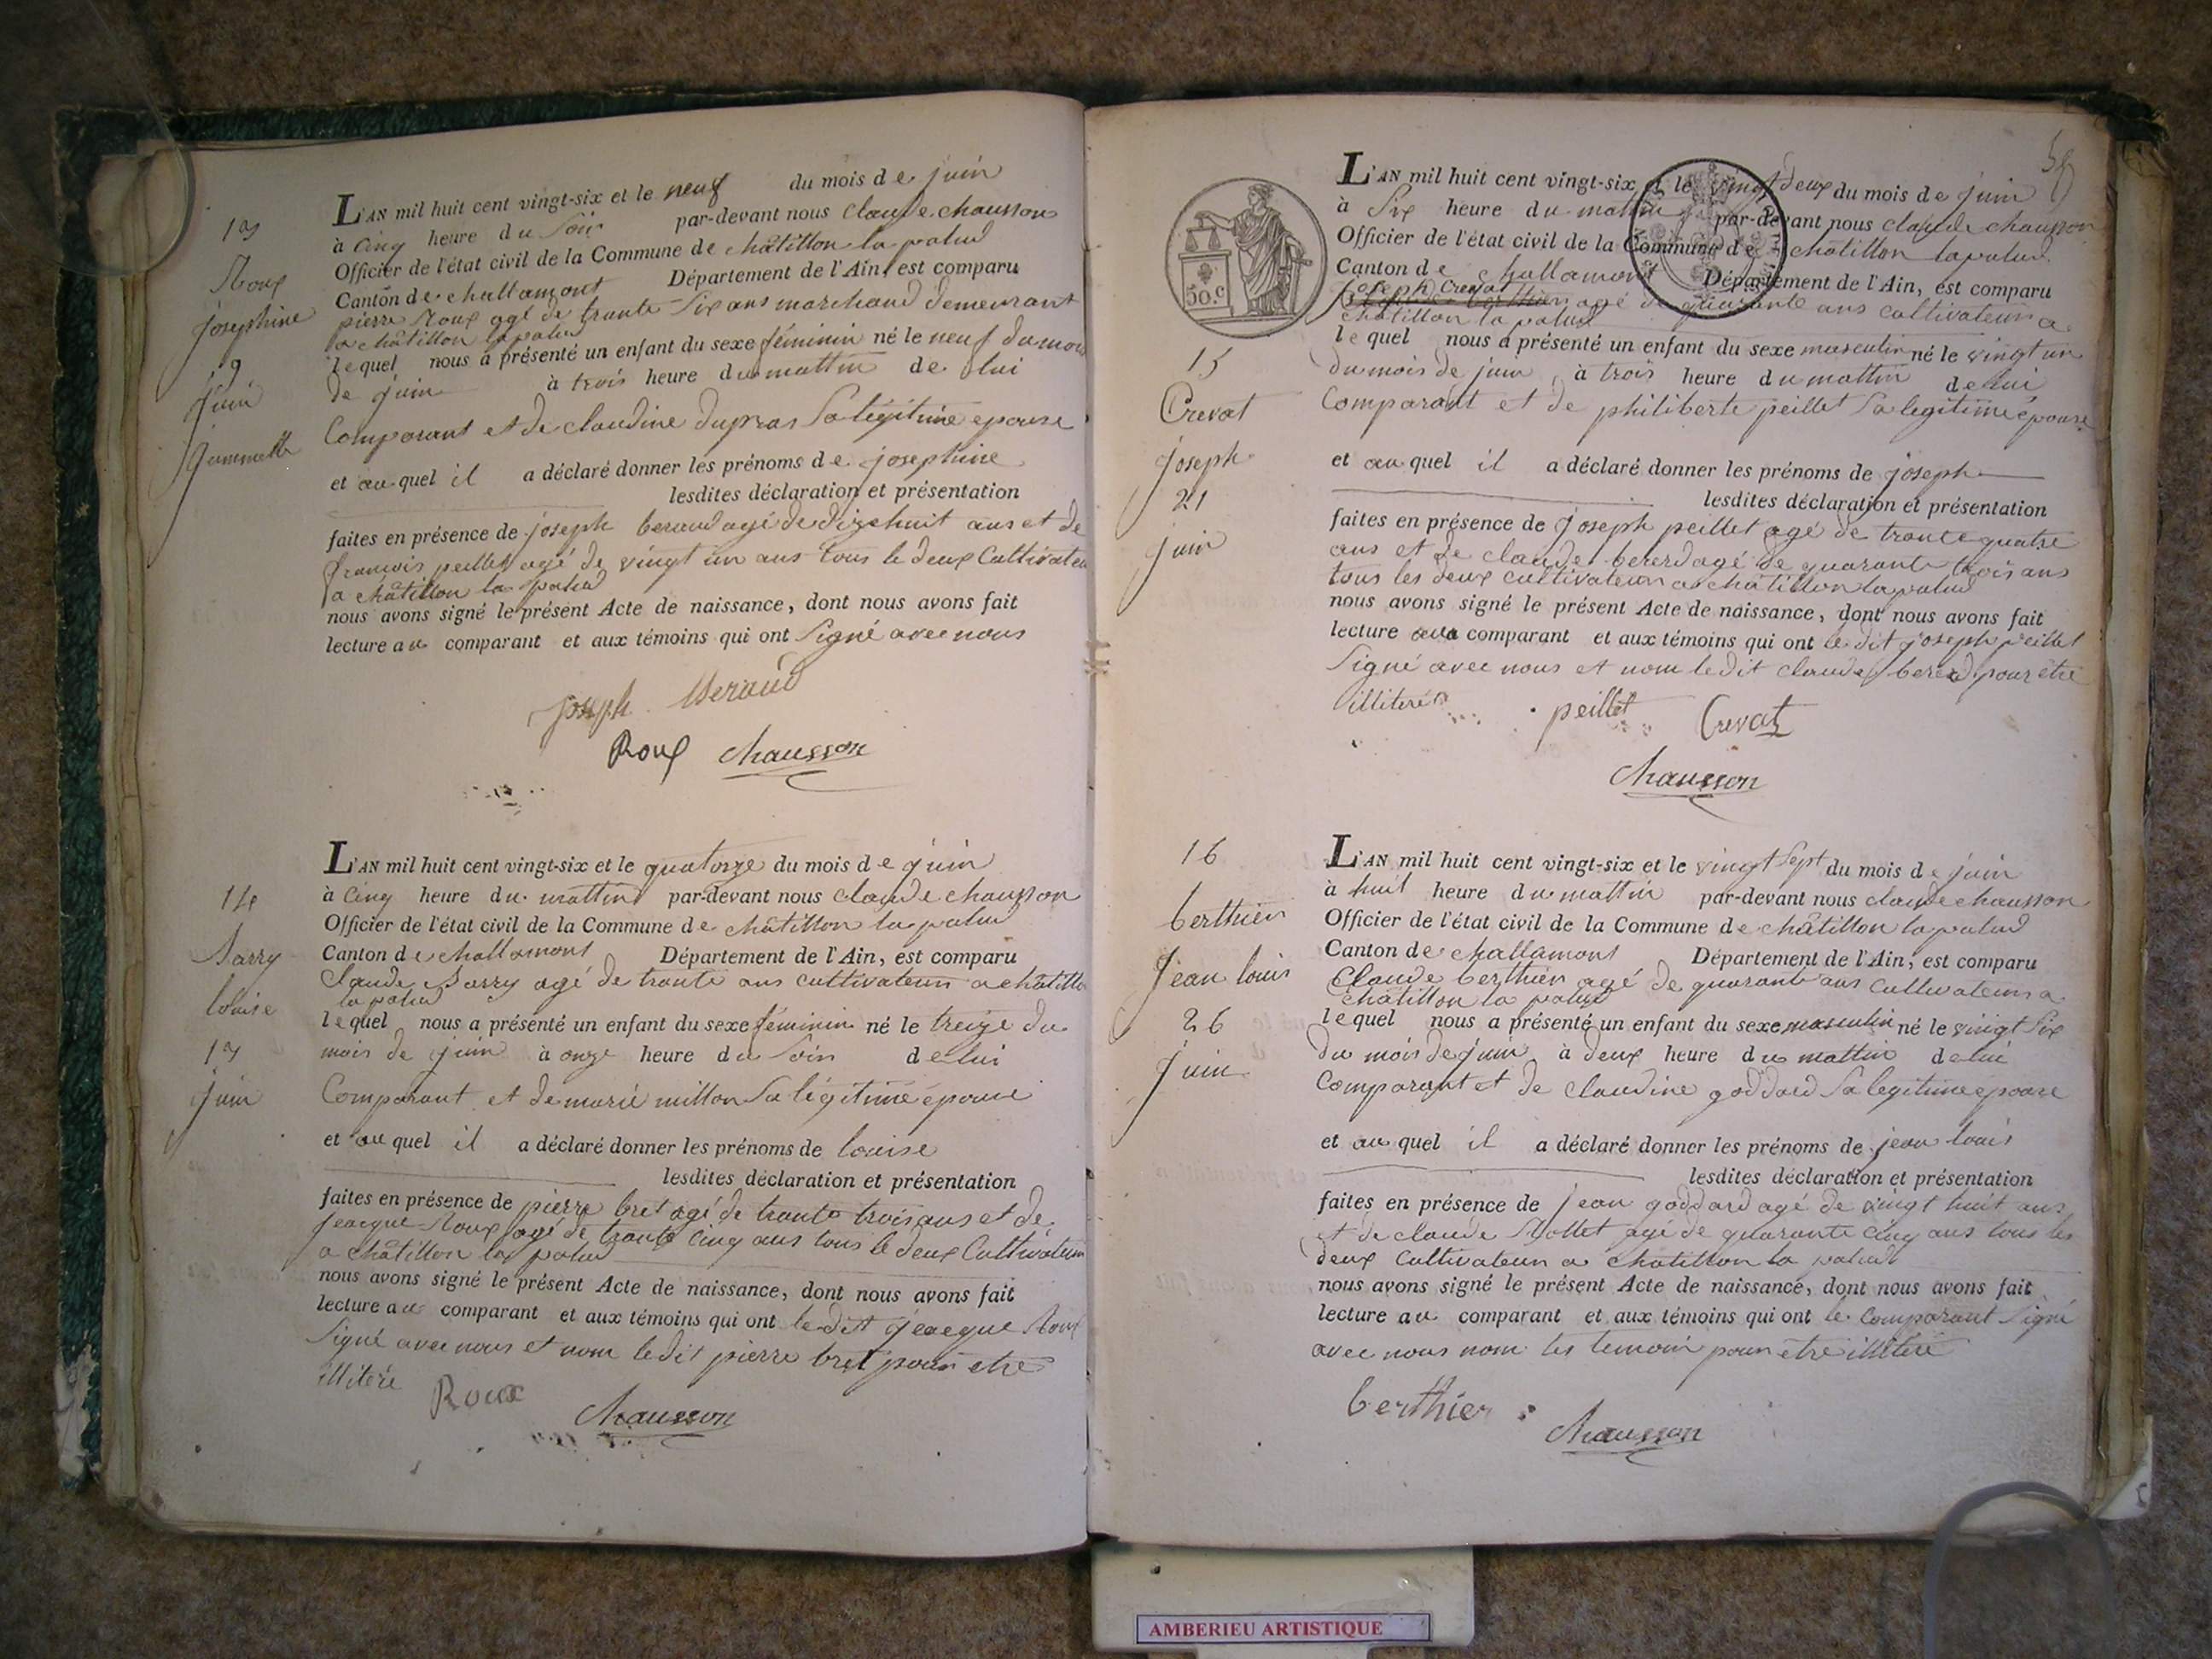 13
Roux
Josephine
9
Juin
Jummelle
L'AN mil huit cent vingt-six et le neuf du mois de juin
à cinq heure du soir par-devant nous claude chausson
Officier de l'état civil de la Commune de châtillon la palud
Canton de challamont Département de l'Ain, est comparu
pierre Roux agé de trante six ans marchand demeurant
a châtillon la palud
lequel nous a présenté un enfant du sexe féminin né le neuf du mois
de juin à trois heure du mattin de lui
Comparant et de claudine dupras sa légitime epouse
et au quel il a déclaré donner les prénoms de josephine
lesdites déclaration et présentation
faites en présence de joseph beraud agé de dizehuit ans et de
francois peillet agé de vingt un ans tous le deux Cultivateur
a châtillon la palud
nous avons signé le présent Acte de naissance, dont nous avons fait
lecture au comparant et aux témoins qui ont signé avec nous
joseph Beraud
Roux chausson
14
Sarry
louise
13
juin
L'AN mil huit cent vingt-six et le quatorze du mois de juin
à cinq heure du mattin par-devant nous claude chausson
Officier de l'état civil de la Commune de châtillon la palud
Canton de challamont Département de l'Ain, est comparu
Claude Sarry agé de trante ans cultivateur a châtillon
la palud
lequel nous a présenté un enfant du sexe féminin né le treize du
mois de juin à onze heure du soir de lui
Comparant et de marie millon sa légitime épouse
et au quel il a déclaré donner les prénoms de louise
lesdites déclaration et présentation
faites en présence de pierre bret agé de trante trois ans et de
jeacque Roux agé de trante cinq ans tous le deux Cultivateur
a châtillon la palud
nous avons signé le présent Acte de naissance, dont nous avons fait
lecture au comparant et aux témoins qui ont le dit jeacque Roux
signé avec nous et nom ledit pierre bret pour etre
illiteré
Roux
chausson
50.c
15
Crevat
joseph
21
juin
L'AN mil huit cent vingt-six et le vingt deux du mois de juin
à six heure du mattin par-devant nous claude chausson
Officier de l'état civil de la Commune de châtillon la palud
Canton de challamont Département de l'Ain, est comparu
joseph Crevat
agé de quarante ans cultivateur a
châtillon la palud
lequel nous a présenté un enfant du sexe masculin né le vingt un
du mois de juin à trois heure du mattin de lui
Comparant et de philiberte peillet sa legitime épouse
et au quel il a déclaré donner les prénoms de joseph
lesdites déclaration et présentation
faites en présence de joseph peillet agé de trante quatre
ans et de claude bererd agé de quarante trois ans
tous les deux cultivateur a châtillon la palud
nous avons signé le présent Acte de naissance, dont nous avons fait
lecture au comparant et aux témoins qui ont le dit joseph peillet
signé avec nous et nom ledit claude bererd pour être
illiteré
peillet Crevat
chausson
16
berthier
jean louis
26
juin
L'AN mil huit cent vingt-six et le vingt sept du mois de juin
à huit heure du mattin par-devant nous claude chausson
Officier de l'état civil de la Commune de châtillon la palud
Canton de challamont Département de l'Ain, est comparu
Claude berthier agé de quarante ans cultivateur a
châtillon la palud
lequel nous a présenté un enfant du sexe masculin né le vingt six
du mois de juin à deux heure du mattin de lui
Comparant et de claudine goddard sa legitime epouse
et au quel il a déclaré donner les prénoms de jean louis
lesdites déclaration et présentation
faites en présence de jean goddard agé de vingt huit ans
et de claude Mollet agé de quarante cinq ans tous les
deux cultivateur a châtillon la palud
nous avons signé le présent Acte de naissance, dont nous avons fait
lecture au comparant et aux témoins qui ont le comparant signé
avec nous nom les temoin pour etre illiteré
berthier
chausson
AMBERIEU ARTISTIQUE